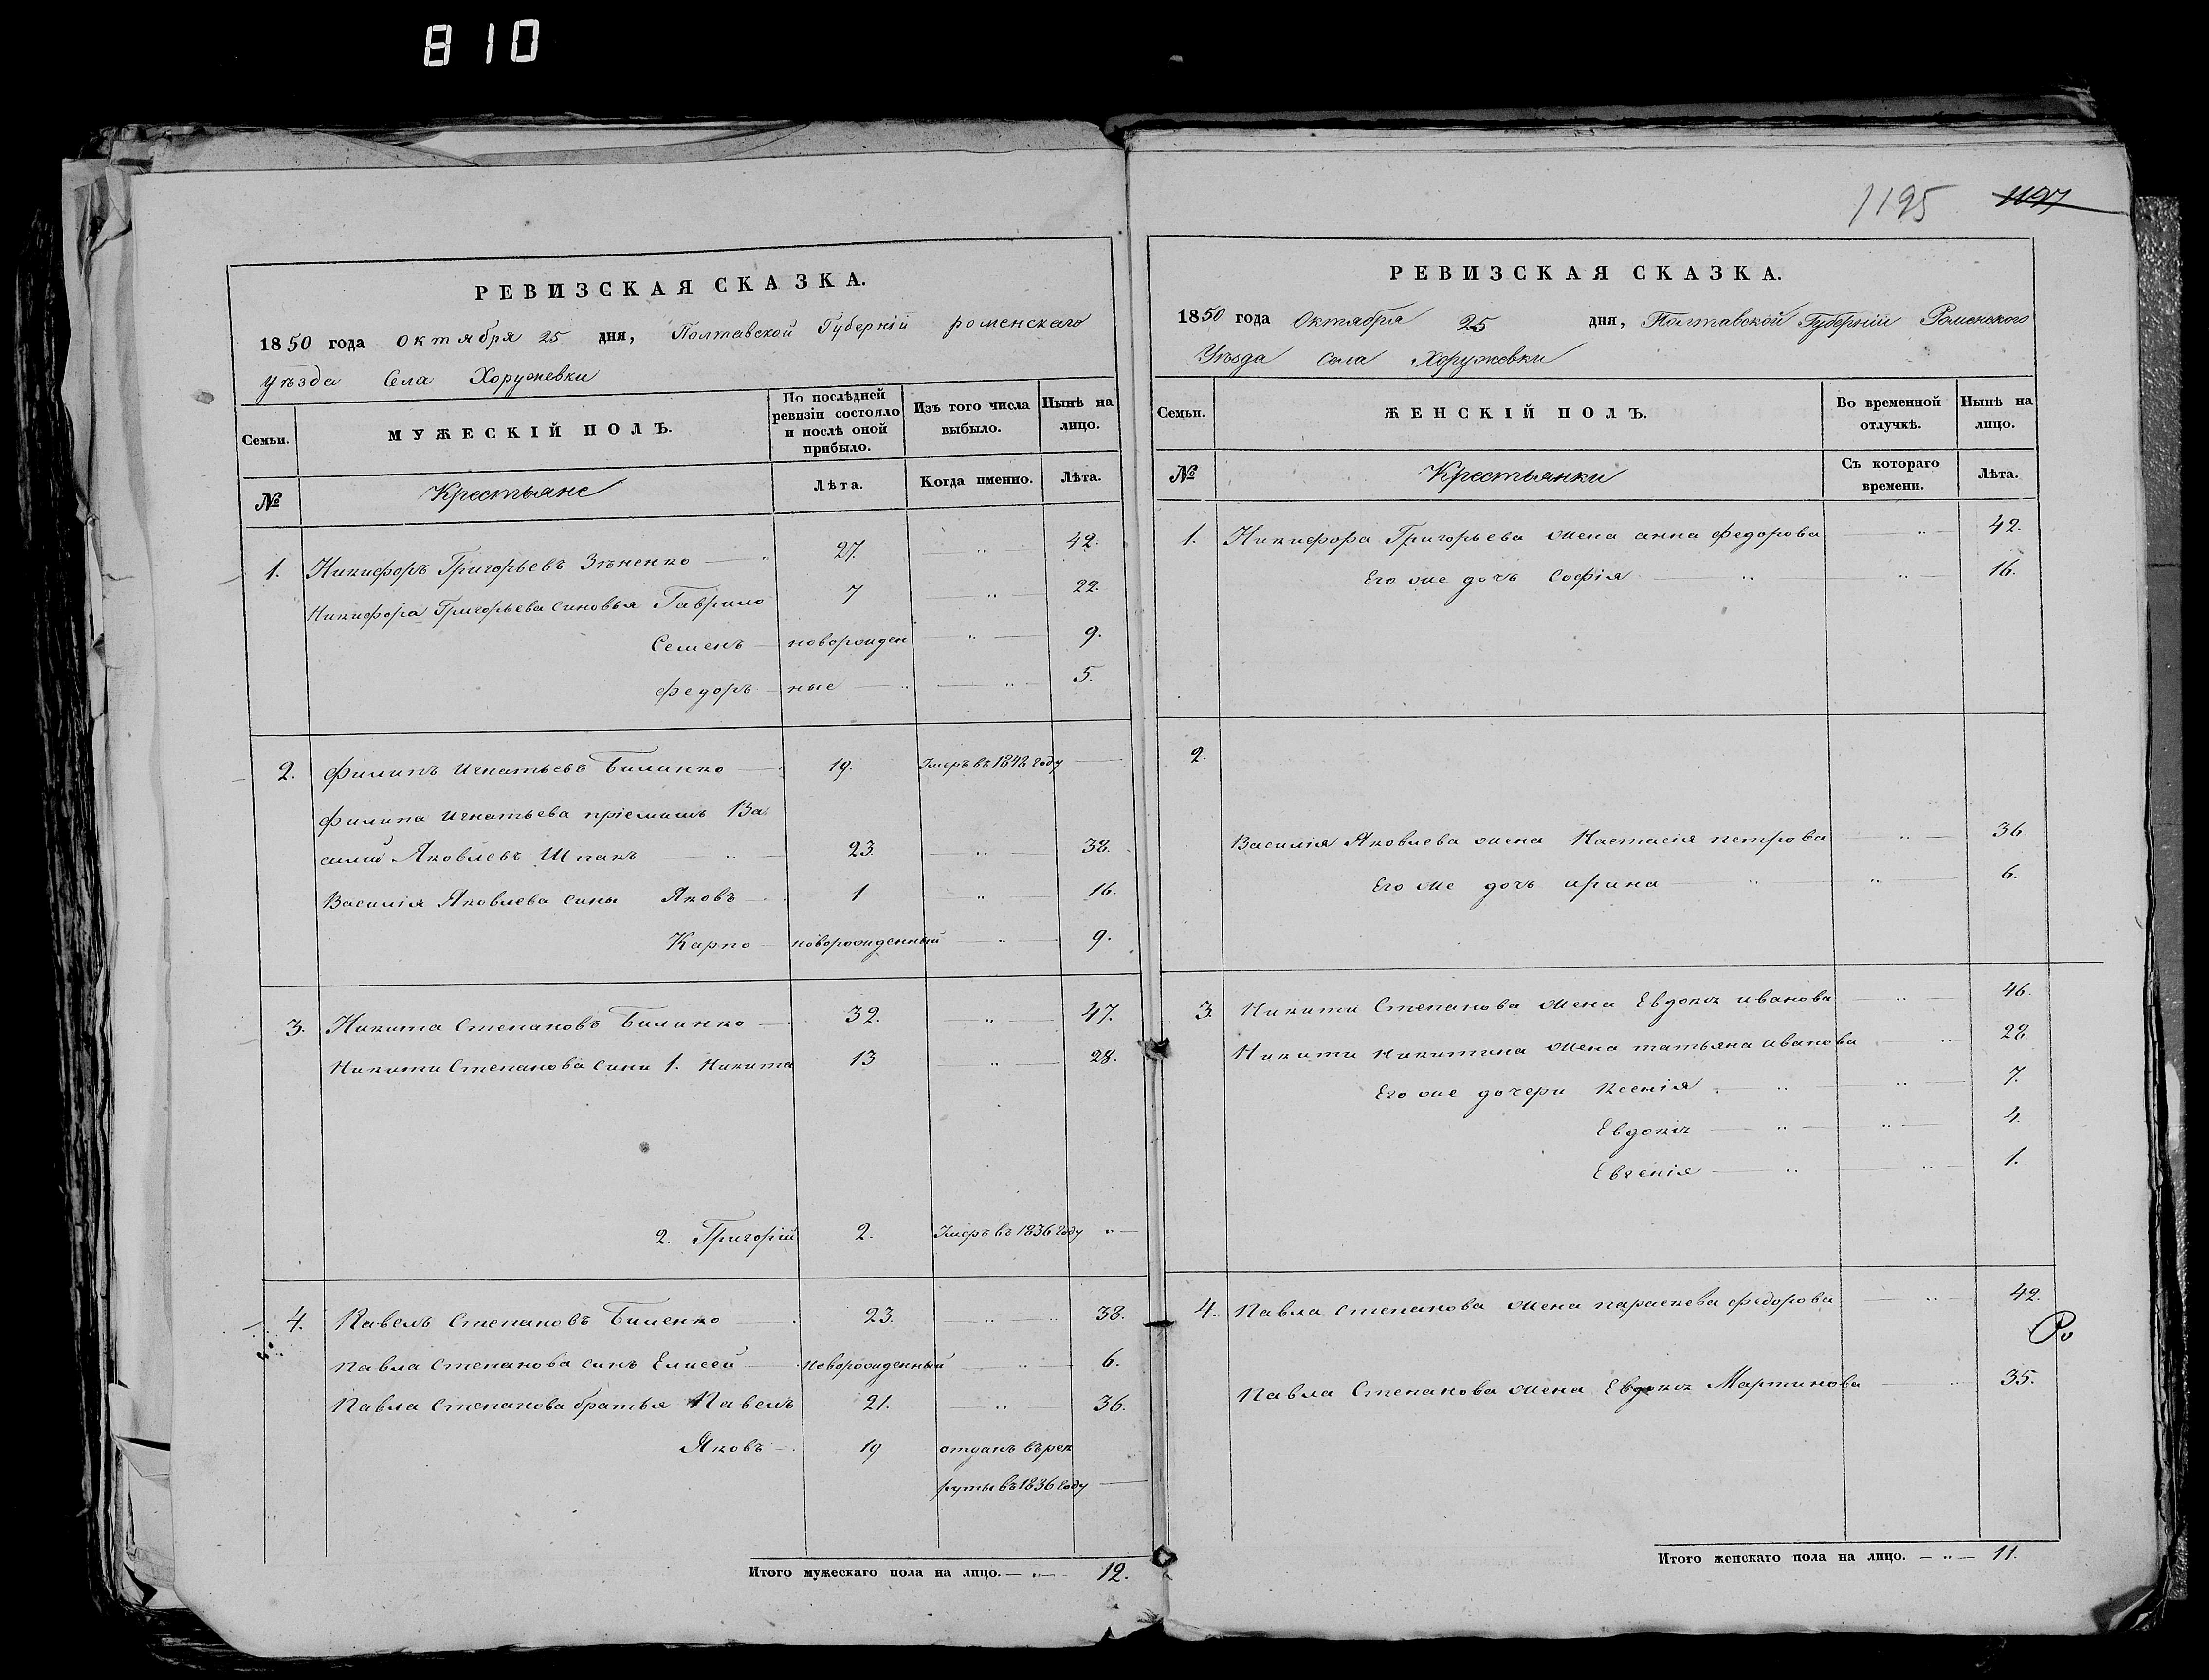 810
1195 1197
РЕВИЗСКАЯ СКАЗКА.
1850 года Октября 25 дня, Полтавской Губерніи роменскаго
уѣзда Села Хоружевки
Семьи.
МУЖЕСКІЙ ПОЛЪ.
По послѣдней ревизіи состояло и послѣ оной прибыло.
Изъ того числа выбыло.
Нынѣ на лицо.
№ Крестьяне Лѣта. Когда именно. Лѣта.
1. Никифоръ Григорьевъ Зѣненко — „ 27. „ 42.
Никифора Григорьева синовья Гаврило 7 — „ — 22.
Семенъ — новорожден — „ — 9.
Федоръ — ные — „ — „ — 5.
2. Филипъ Игнатьевъ Билинко — 19. Умеръ въ 1848 году —
Филипа Игнатьева пріемишъ Ва
силий Яковлевъ Шпакъ — „ — 23. — „ — 38.
Василія Яковлева сины Яковъ — 1 — „ — 16.
Карпо — новорожденный — „ — 9.
3. Никита Степановъ Билинко — 32. — „ — 47.
Никити Степанова сини 1. Никита 13 — „ — 28.
2. Григорій 2. Умеръ въ 1836 году „ —
4. Павелъ Степановъ Биленко — 23. — „ — 38.
Павла Степанова синъ Елисей — новорожденный — „ — 6.
Павла Степанова братья Павелъ 21. — „ — 36.
Яковъ — 19 отданъ въ рек
руты въ 1836 году —
Итого мужескаго пола на лицо. — „ — 12.
РЕВИЗСКАЯ СКАЗКА.
1850 года Октября 25 дня, Полтавской Губерніи Роменского
Уѣзда Села Хоружевки
Семьи.
ЖЕНСКІЙ ПОЛЪ.
Во временной отлучкѣ.
Нынѣ на лицо.
№ Крестьянки Съ котораго времени. Лѣта.
1. Никифора Григорьева жена анна Федорова — „ — 42.
Его же дочь Софія — „ „ 16.
2.
Василія Яковлева жена Настасія петрова — „ — 36.
Его же дочь ирина — „ „ — 6.
3. Никити Степанова жена Евдокія иванова — „ 46.
Никити Никитина жена татьяна иванова — „ 28.
Его же дочери Ксенія — „ — „ — 7.
Евдокія — „ — „ — 4.
Евгенія — „ — „ — 1.
4. Павла Степанова жена параскева федорова — „ — 42.
Ро
Павла Степанова жена Евдокія Мартинова — „ 35.
Итого женскаго пола на лицо. — „ — 11.